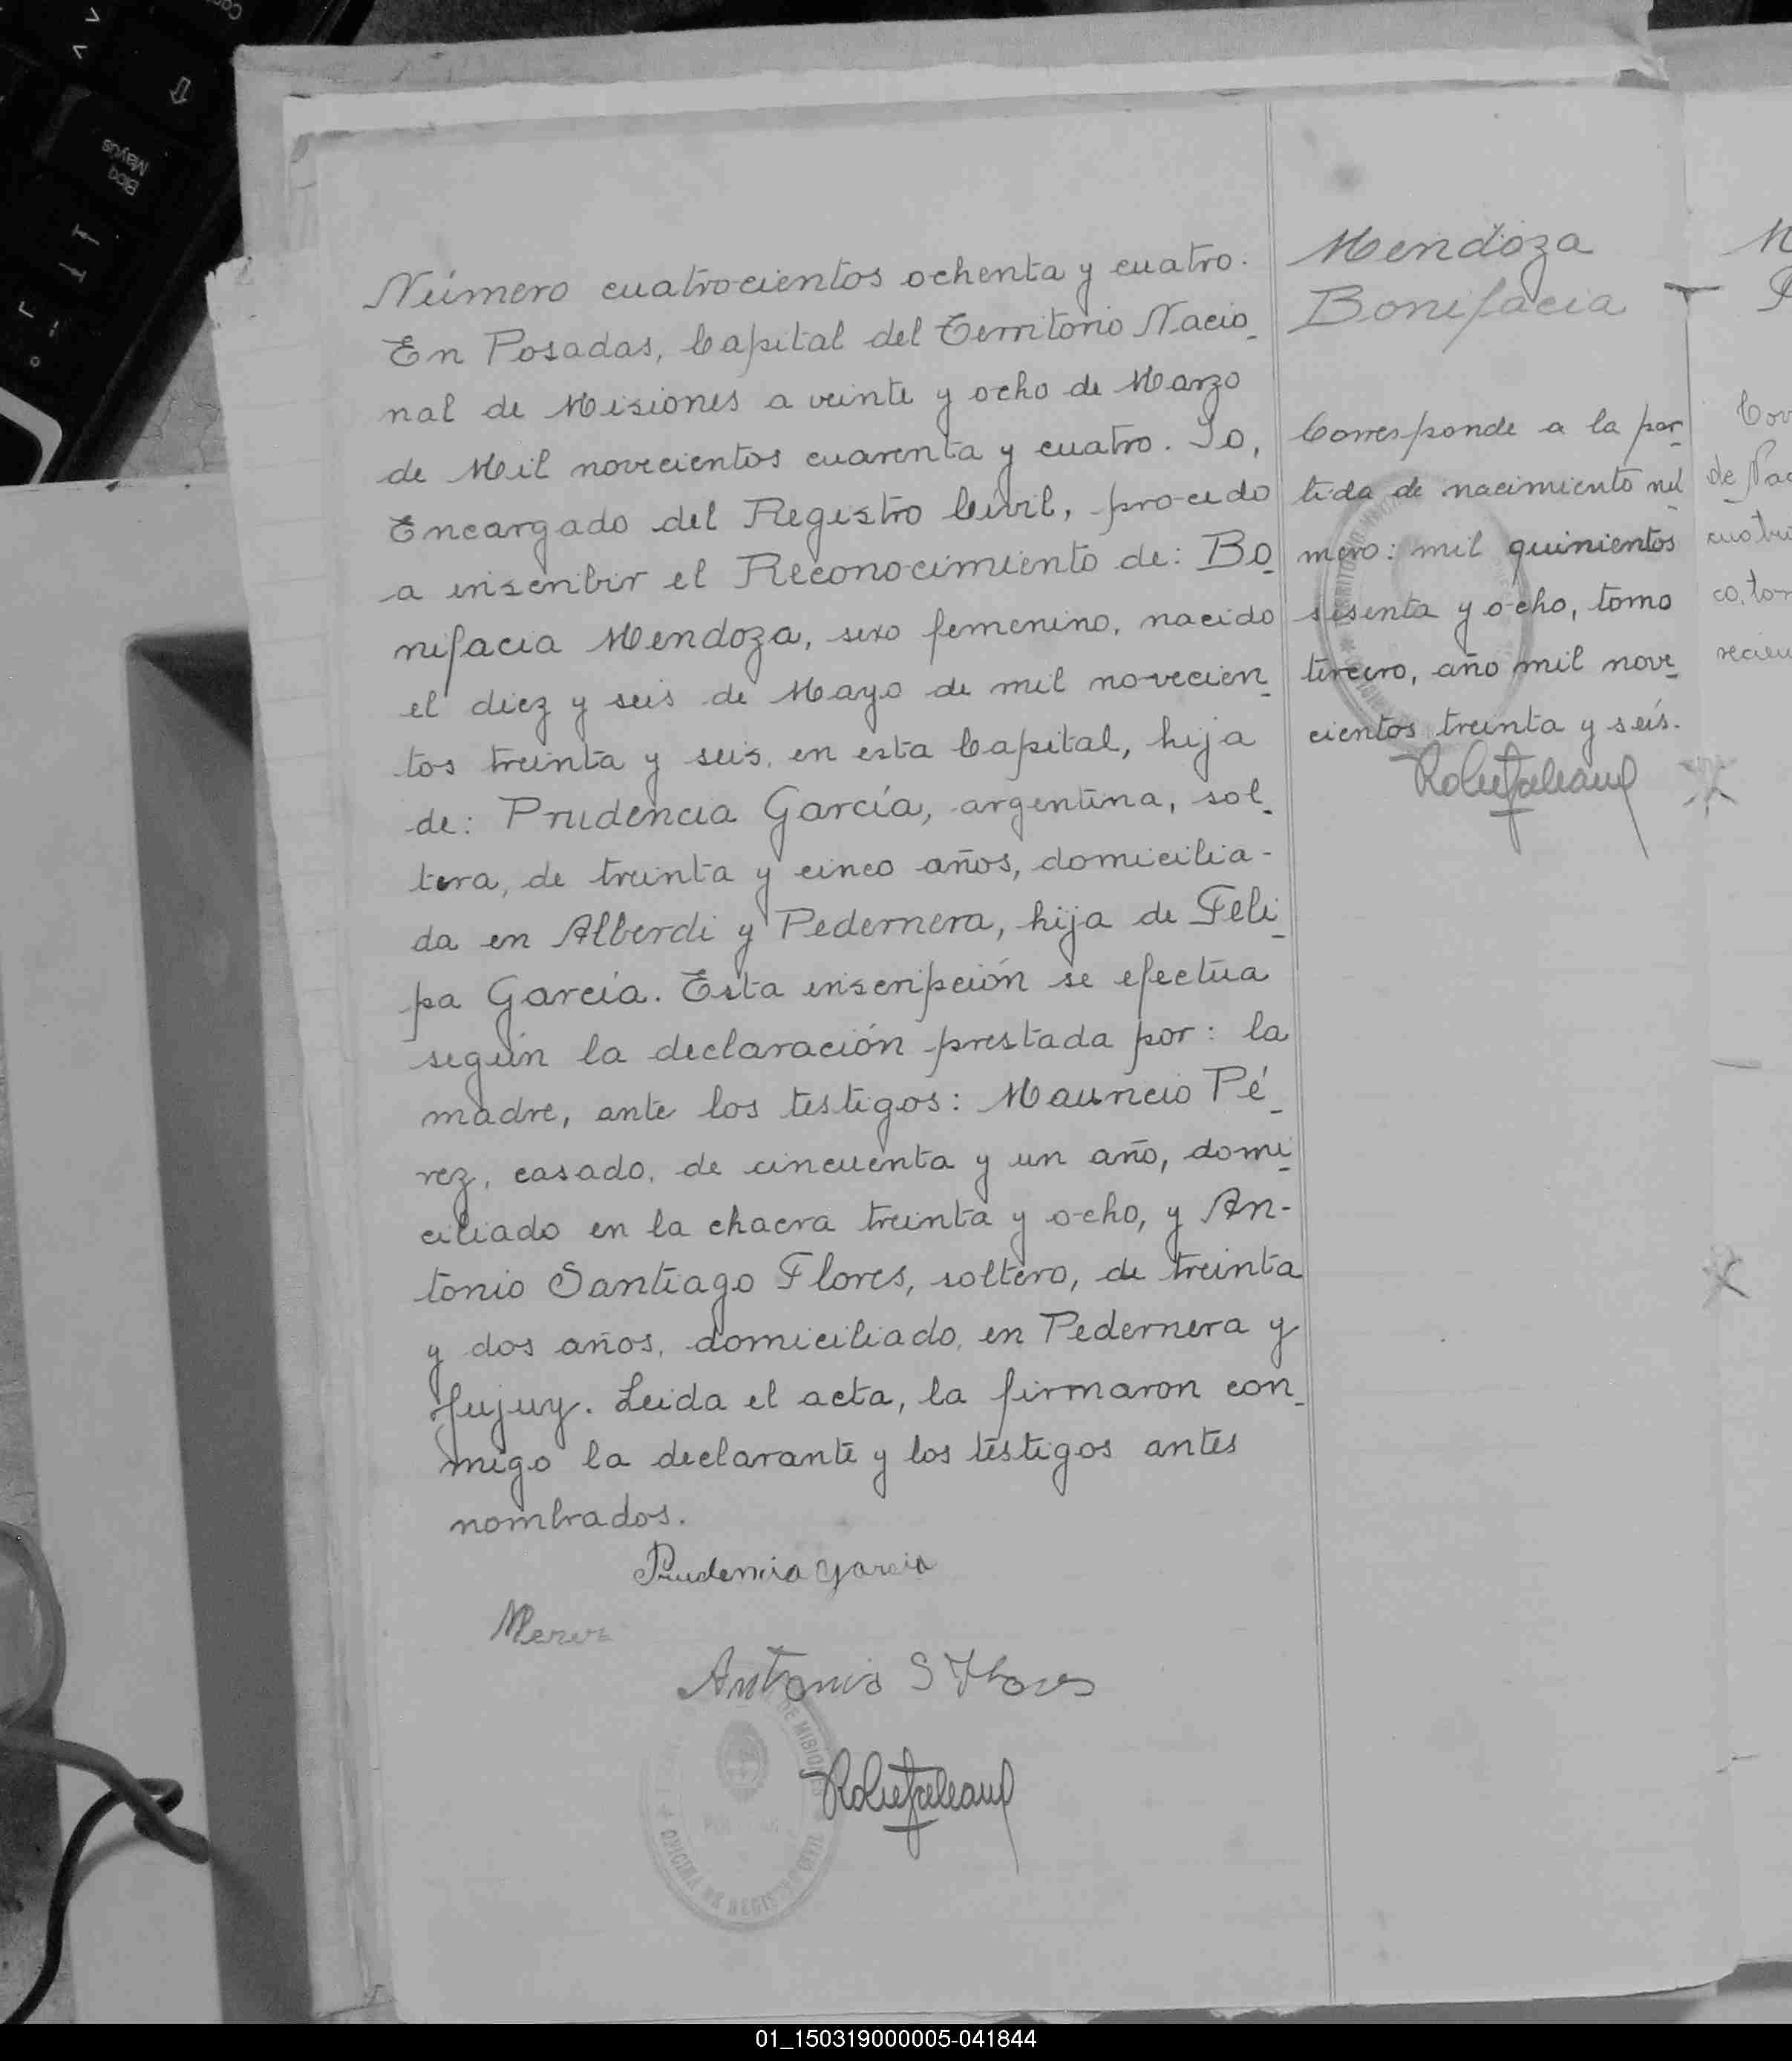 Número cuatrocientos ochenta y cuatro.
En Posadas, Capital del Territorio Nacio_
nal de Misiones a veinte y ocho de Marzo
de Mil novecientos cuarenta y cuatro. Yo,
Encargado del Registro Civil, procedo
a inscribir el Reconocimiento de: Bo_
nifacia Mendoza, sexo femenino, nacido
el diez y seis de Mayo de mil novecien_
tos treinta y seis, en esta Capital, hija
de: Prudencia García, argentina, sol_
tera, de treinta y cinco años, domicilia-
da en Alberdi y Pedernera, hija de Feli_
pa García. Esta inscripción se efectúa
según la declaración prestada por: la
madre, ante los testigos: Mauricio Pé_
rez, casado, de cincuenta y un año, domi_
ciliado en la chacra treinta y ocho, y An-
tonio Santiago Flores, soltero, de treinta
y dos años, domiciliado, en Pedernera y
Jujuy. Leida el acta, la firmaron con_
migo la declarante y los testigos antes
nombrados.
Prudencia Garcia
Antonio S Flores
DE MISIONES
OFICINA DE REGISTRO CIVIL
Mendoza
Bonifacia
Corresponde a la par_
tida de nacimiento nú_
mero: mil quinientos
sesenta y ocho, tomo
tercero, año mil nove_
cientos treinta y seís.
Bloq
Mayús
01_150319000005-041844